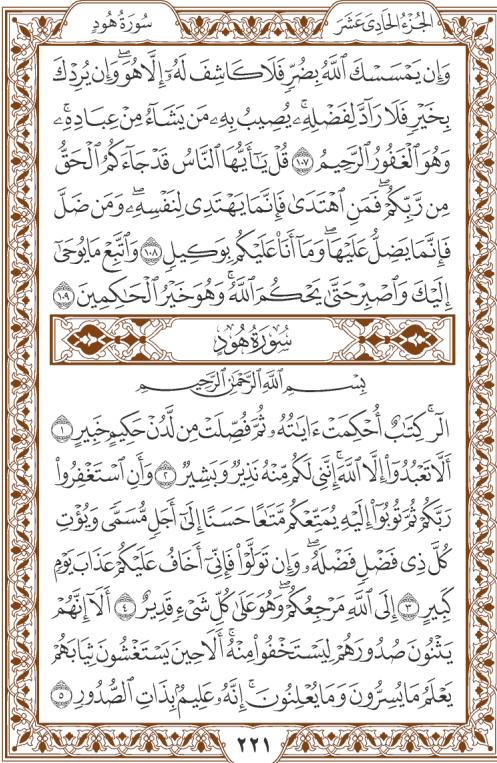 سُورَةُ هُودٍ
الجُزْءُ الحَادِىَ عَشَرَ
وَإِن يَمْسَسْكَ ٱللَّهُ بِضُرٍّ فَلَا كَاشِفَ لَهُۥٓ إِلَّا هُوَۖ وَإِن يُرِدْكَ
بِخَيْرٍ فَلَا رَآدَّ لِفَضْلِهِۦۚ يُصِيبُ بِهِۦ مَن يَشَآءُ مِنْ عِبَادِهِۦۚ
وَهُوَ ٱلْغَفُورُ ٱلرَّحِيمُ ١٠٧ قُلْ يَٰٓأَيُّهَا ٱلنَّاسُ قَدْ جَآءَكُمُ ٱلْحَقُّ
مِن رَّبِّكُمْۖ فَمَنِ ٱهْتَدَىٰ فَإِنَّمَا يَهْتَدِى لِنَفْسِهِۦۖ وَمَن ضَلَّ
فَإِنَّمَا يَضِلُّ عَلَيْهَاۖ وَمَآ أَنَا۠ عَلَيْكُم بِوَكِيلٍ ١٠٨ وَٱتَّبِعْ مَا يُوحَىٰٓ
إِلَيْكَ وَٱصْبِرْ حَتَّىٰ يَحْكُمَ ٱللَّهُۚ وَهُوَ خَيْرُ ٱلْحَٰكِمِينَ ١٠٩
سُورَةُ هُودٍ
بِسْمِ ٱللَّهِ ٱلرَّحْمَٰنِ ٱلرَّحِيمِ
الٓرۚ كِتَٰبٌ أُحْكِمَتْ ءَايَٰتُهُۥ ثُمَّ فُصِّلَتْ مِن لَّدُنْ حَكِيمٍ خَبِيرٍ ١
أَلَّا تَعْبُدُوٓا۟ إِلَّا ٱللَّهَۚ إِنَّنِى لَكُم مِّنْهُ نَذِيرٌ وَبَشِيرٌ ٢ وَأَنِ ٱسْتَغْفِرُوا۟
رَبَّكُمْ ثُمَّ تُوبُوٓا۟ إِلَيْهِ يُمَتِّعْكُم مَّتَٰعًا حَسَنًا إِلَىٰٓ أَجَلٍ مُّسَمًّى وَيُؤْتِ
كُلَّ ذِى فَضْلٍ فَضْلَهُۥۖ وَإِن تَوَلَّوْا۟ فَإِنِّىٓ أَخَافُ عَلَيْكُمْ عَذَابَ يَوْمٍ
كَبِيرٍ ٣ إِلَى ٱللَّهِ مَرْجِعُكُمْۖ وَهُوَ عَلَىٰ كُلِّ شَىْءٍ قَدِيرٌ ٤ أَلَآ إِنَّهُمْ
يَثْنُونَ صُدُورَهُمْ لِيَسْتَخْفُوا۟ مِنْهُۚ أَلَا حِينَ يَسْتَغْشُونَ ثِيَابَهُمْ
يَعْلَمُ مَا يُسِرُّونَ وَمَا يُعْلِنُونَۚ إِنَّهُۥ عَلِيمٌۢ بِذَاتِ ٱلصُّدُورِ ٥
٢٢١